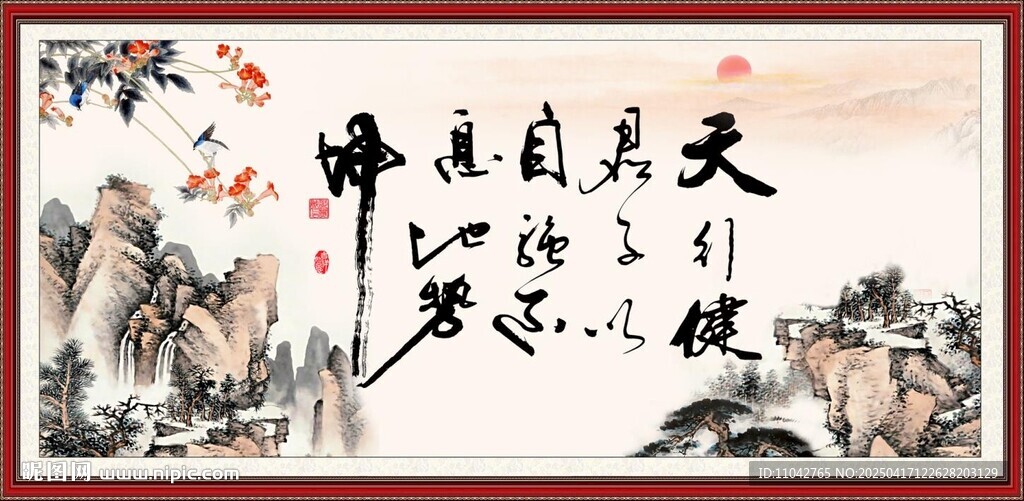 天行健
君子以
自强不
息地势
坤
昵图网 www.nipic.com
ID:11042765 NO:20250417122628203129